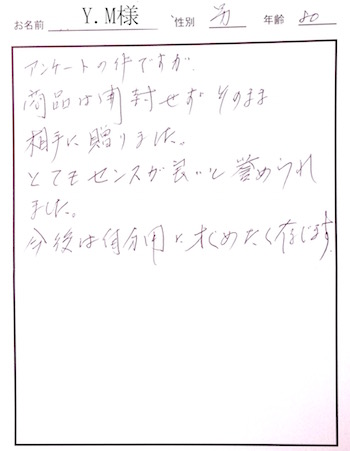 お名前 Y.M様 性別 男 年齢 80
アンケートの件ですが、
商品は開封せずそのまま
相手に贈りました。
とてもセンスが良いと誉められ
ました。
今後は自分用に求めたく存じます